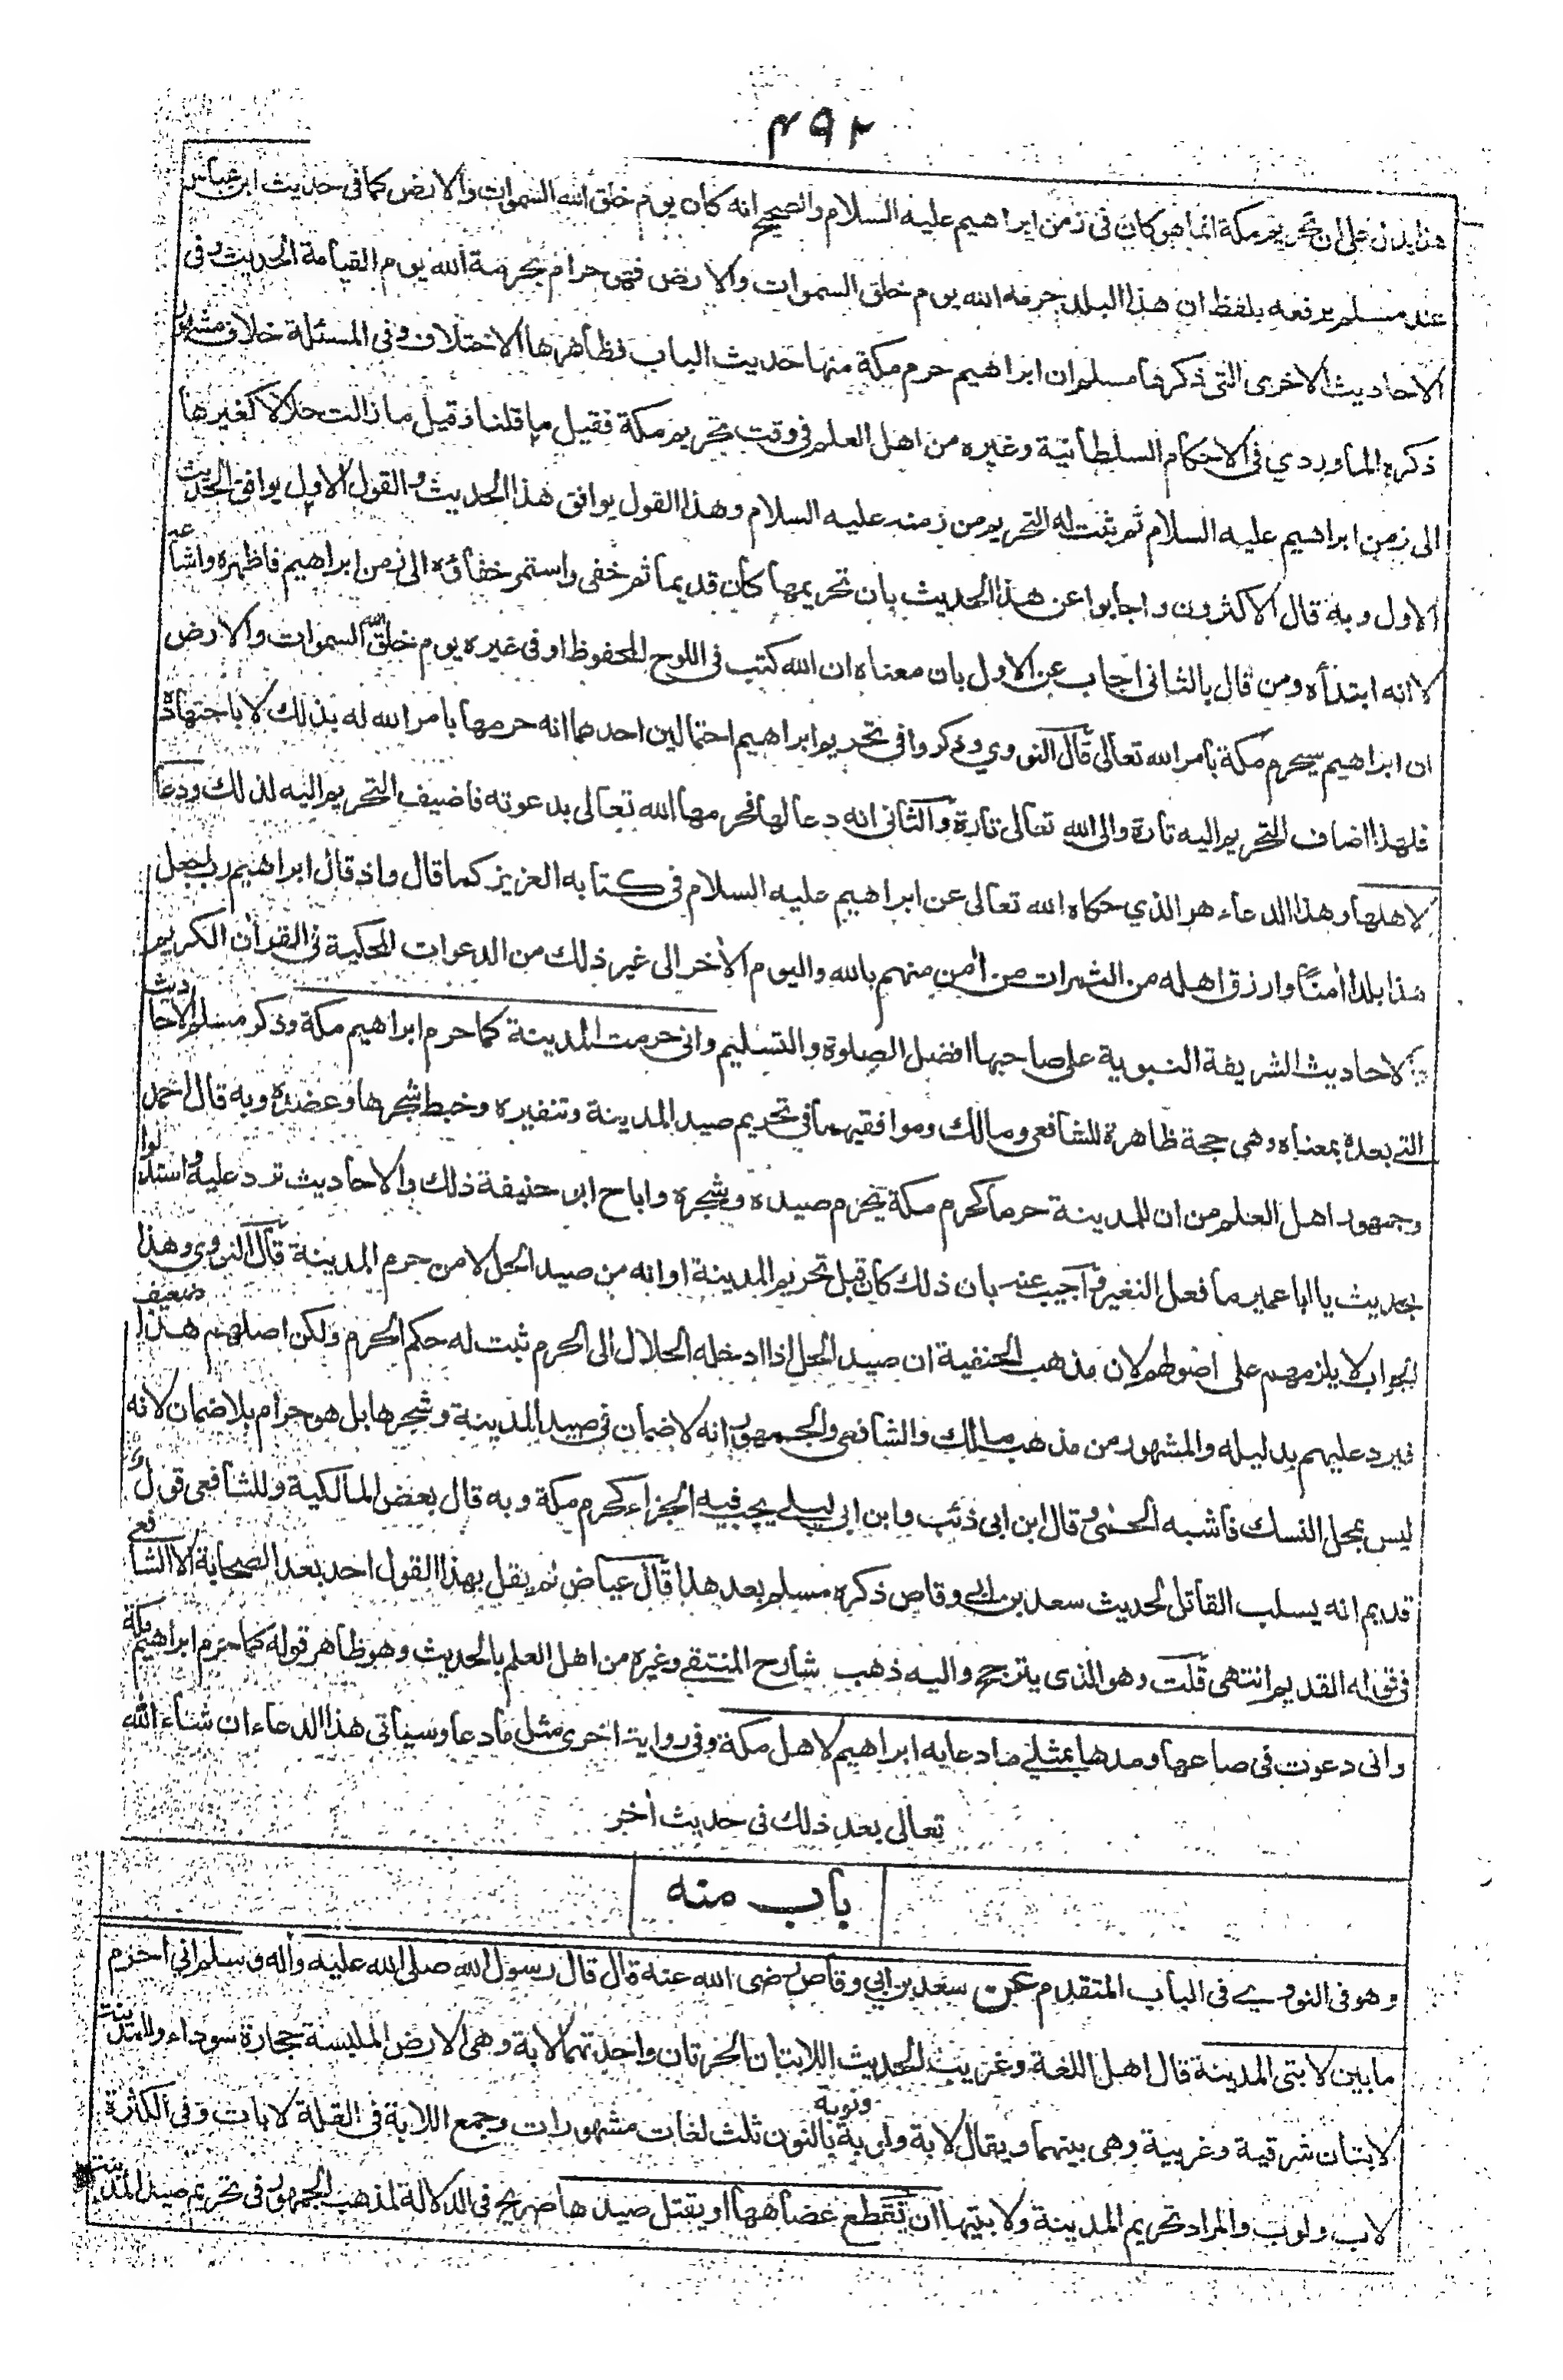 ٤٩٢
هذا يدل على ان تحريم مكة انما هو كان فى زمن ابراهيم عليه السلام والصحيح انه كان يوم خلق الله السموات والارض كما فى حديث ابن عباس
عند مسلم يرفعه بلفظ ان هذا البلد حرمه الله يوم خلق السموات والارض فهو حرام بحرمة الله يوم القيامة الحديث وفى
الاحاديث الاخرى التى ذكرها مسلم ان ابراهيم حرم مكة منها حديث الباب فظاهرها الاختلاف وفى المسئلة خلاف مشهور
ذكره الماوردي فى الاحكام السلطانية وغيره من اهل العلم فى وقت تحريم مكة فقيل ما قلنا وقيل ما زالت حلالا كغيرها
الى زمن ابراهيم عليه السلام ثم ثبت له التحريم من زمنه عليه السلام وهذا القول يوافق هذا الحديث والقول الاول يوافق الحديث
الاول وبه قال الاكثرون واجابوا عن هذا الحديث بان تحريمها كان قديما ثم خفى واستمر خفاؤه الى زمن ابراهيم فاظهره واشاعه
لا انه ابتدأه ومن قال بالثانى اجاب عن الاول بان معناه ان الله كتب فى اللوح المحفوظ او فى غيره يوم خلق الله السموات والارض
ان ابراهيم سيحرم مكة بامر الله تعالى قال النووي وذكروا فى تحريم ابراهيم احتمالين احدهما انه حرمها بامر الله له بذلك لا باجتهاده
فلهذا اضاف التحريم اليه تارة والى الله تعالى تارة والثانى انه دعا لها فحرمها الله تعالى بدعوته فاضيف التحريم اليه لذلك ودعا
لاهلها وهذا الدعاء هو الذي حكاه الله تعالى عن ابراهيم عليه السلام فى كتابه العزيز كما قال واذ قال ابراهيم رب اجعل
هذا بلدا أمنًا وارزق اهله من الثمرات من أمن منهم بالله واليوم الأخر الى غير ذلك من الدعوات المحكية فى القرأن الكريم
والاحاديث الشريفة النبوية على صاحبها افضل الصلوة والتسليم وانى حرمت المدينة كما حرم ابراهيم مكة وذكر مسلم الاحاديث
التى بعده بمعناه وهى حجة ظاهرة للشافعى ومالك وموافقيهما فى تحريم صيد المدينة وتنفيره وخبط شجرها وعضده وبه قال احمد
وجمهور اهل العلم من ان للمدينة حرما كحرم مكة يحرم صيده وشجره واباح ابو حنيفة ذلك والاحاديث ترد عليه واستدلوا
بحديث يا ابا عمير ما فعل النغير وآجيب عنه بان ذلك كان قبل تحريم المدينة او انه من صيد الحل لا من حرم المدينة قال النووي وهذا
الجواب لا يلزمهم على اصولهم لان مذهب الحنفية ان صيد الحل اذا ادخله الحلال الى الحرم ثبت له حكم الحرم ولكن اصلهم هذا ضعيف
فيرد عليهم بدليله والمشهور من مذهب مالك والشافعى والجمهور انه لا ضمان فى صيد المدينة وشجرها بل هو حرام بلا ضمان لانه
ليس بمحل النسك فاشبه الحمى وقال ابن ابى ذئب وابن ابى ليلى يجب فيه الجزاء كحرم مكة وبه قال بعض المالكية وللشافعى قول
قديم انه يسلب القاتل لحديث سعد بن ابى وقاص ذكره مسلم بعد هذا قال عياض لم يقل بهذا القول احد بعد الصحابة الا الشافعى
فى قوله القديم انتهى قلت وهو الذى يترجح واليه ذهب شارح المنتقى وغيره من اهل العلم بالحديث وهو ظاهر قوله كما حرم ابراهيم مكة
وانى دعوت فى صاعها ومدها بمثلى ما دعا به ابراهيم لاهل مكة وفى رواية اخرى مثل ما دعا وسيأتى هذا الدعاء ان شاء الله
تعالى بعد ذلك فى حديث أخر
باب منه
وهو فى النووي فى الباب المتقدم عن سعد بن ابى وقاص رضى الله عنه قال قال رسول الله صلى الله عليه وأله وسلم انى احرم
ما بين لابتى المدينة قال اهل اللغة وغريب الحديث اللابتان الحرتان واحدتهما لابة وهى الارض الملبسة حجارة سوداء وللمدينة
لابتان شرقية وغربية وهى بينهما ويقال لابة ولوبة ونوبة بالنون ثلث لغات مشهورات وجمع اللابة فى القلة لابات وفى الكثرة
لاب ولوب والمراد تحريم المدينة ولابتيها ان يقطع عضاهها او يقتل صيدها صريح فى الدلالة لمذهب الجمهور فى تحريم صيد المدينة